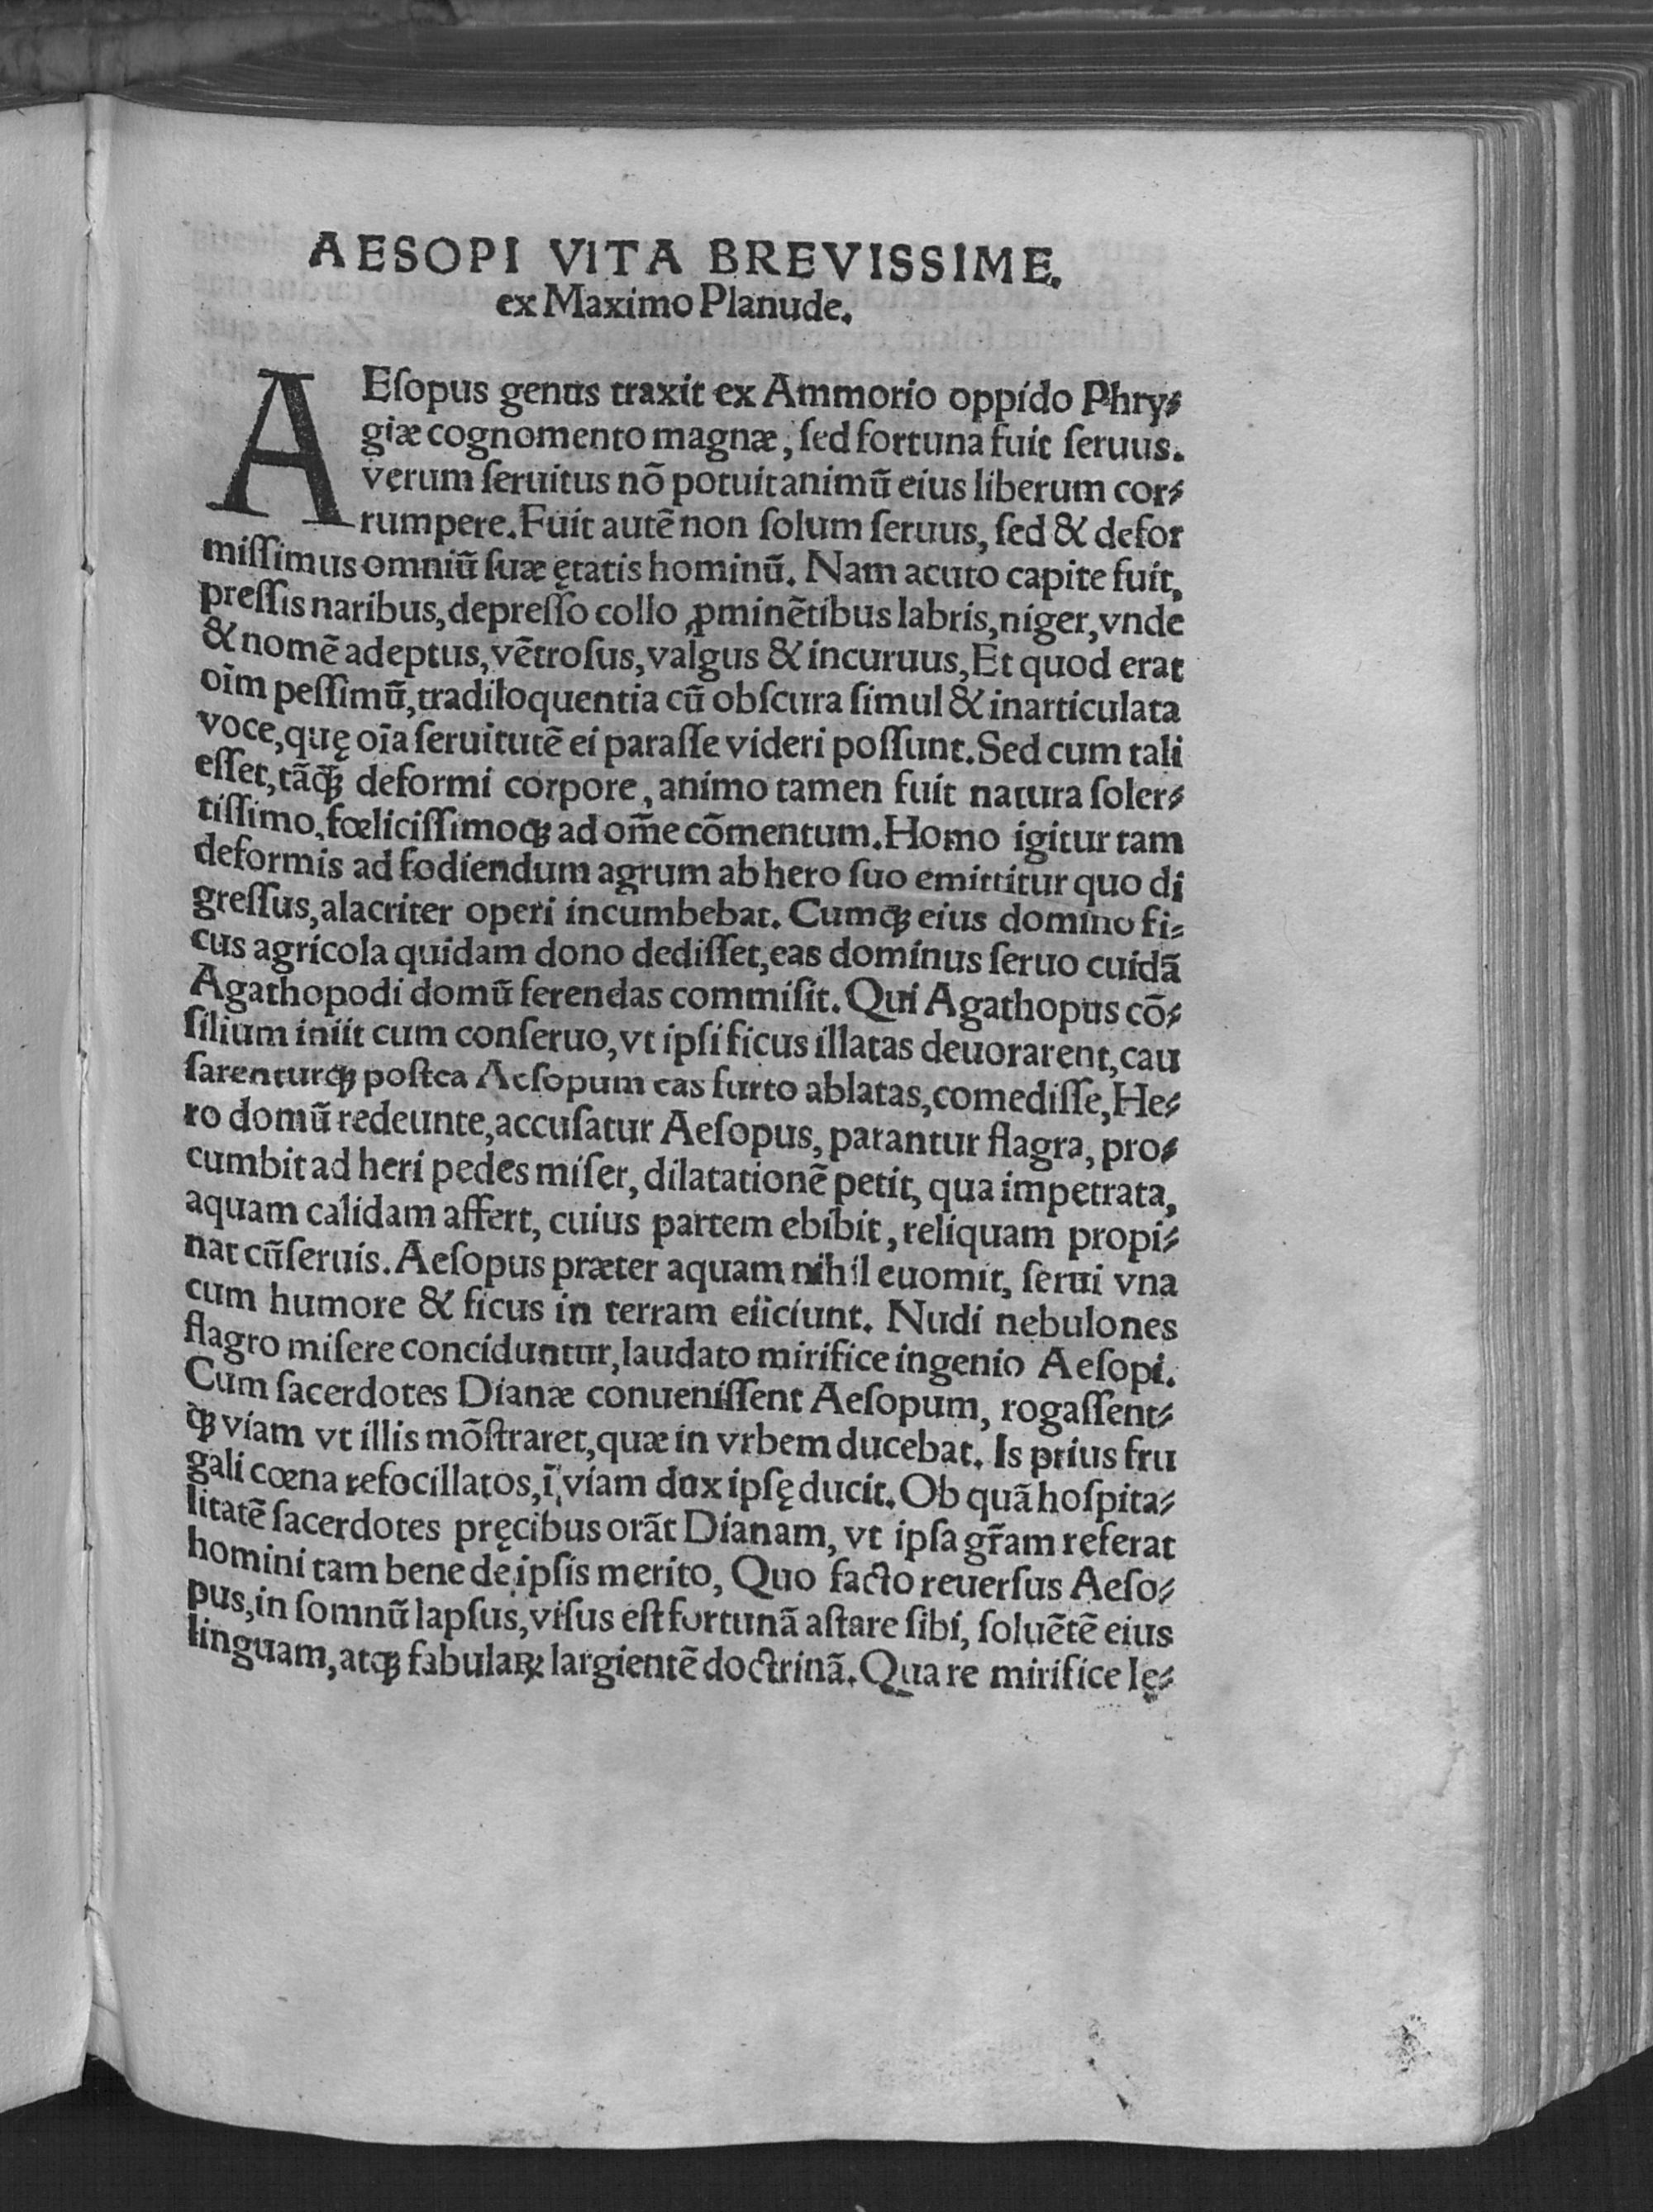 AESOPI VITA BREVISSIME.
ex Maximo Planude.
AEſopus genus traxit ex Ammorio oppido Phry⸗
giæ cognomento magnæ, ſed fortuna fuit ſeruus.
verum ſeruitus nō potuit animū eius liberum cor⸗
rumpere. Fuit autē non ſolum ſeruus, ſed & defor
miſſimus omniū ſuæ ętatis hominū. Nam acuto capite fuit,
preſſis naribus, depreſſo collo ꝓminētibus labris, niger, vnde
& nomē adeptus, vētroſus, valgus & incuruus, Et quod erat
oīm peſſimū, tradiloquentia cū obſcura ſimul & inarticulata
voce, quę oīa ſeruitutē ei paraſſe videri poſſunt. Sed cum tali
eſſet, tāq̄ꝫ deformi corpore, animo tamen fuit natura ſoler⸗
tiſſimo, fœliciſſimoqꝫ ad om̄e cōmentum. Homo igitur tam
deformis ad fodiendum agrum ab hero ſuo emittitur quo di
greſſus, alacriter operi incumbebat. Cumqꝫ eius domino fi⸗
cus agricola quidam dono dediſſet, eas dominus ſeruo cuidā
Agathopodi domū ferendas commiſit. Qui Agathopus cō⸗
ſilium iniit cum conſeruo, vt ipſi ficus illatas deuorarent, cau
ſarenturqꝫ poſtea Aeſopum eas furto ablatas, comediſſe, He⸗
ro domū redeunte, accuſatur Aeſopus, parantur flagra, pro⸗
cumbit ad heri pedes miſer, dilatationē petit, qua impetrata,
aquam calidam affert, cuius partem ebibit, reliquam propi⸗
nat cūſeruis. Aeſopus præter aquam nihil euomit, ſerui vna
cum humore & ficus in terram eiiciunt. Nudi nebulones
flagro miſere conciduntur, laudato mirifice ingenio Aeſopi.
Cum ſacerdotes Dianæ conueniſſent Aeſopum, rogaſſent⸗
qꝫ viam vt illis mōſtraret, quæ in vrbem ducebat. Is prius fru
gali cœna refocillatos, ī viam dux ipſę ducit. Ob quā hoſpita⸗
litatē ſacerdotes pręcibus orāt Dianam, vt ipſa gr̄am referat
homini tam bene de ipſis merito, Quo facto reuerſus Aeſo⸗
pus, in ſomnū lapſus, viſus eſt fortunā aſtare ſibi, ſoluētē eius
linguam, atqꝫ fabulaꝝ largientē doctrinā. Qua re mirifice lę⸗